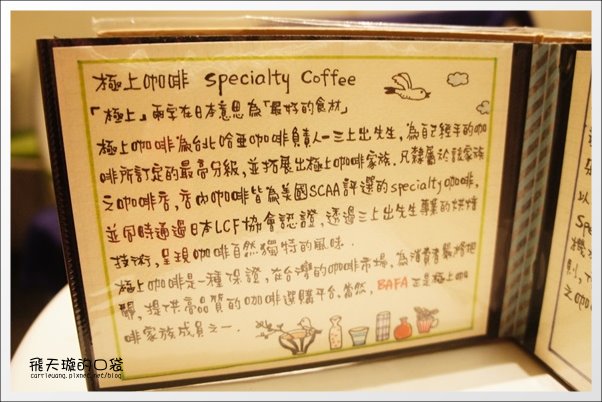 極上咖啡 Specialty Coffee
「極上」兩字在日本意思為「最好的食材」
極上咖啡為台北哈亞咖啡負責人—三上出先生，為自己經手的咖
啡所訂定的最高分級，並拓展出極上咖啡家族．凡隸屬於該家族
之咖啡店，店內咖啡皆為美國SCAA評選的specialty咖啡，
並同時通過日本LCF協會認證，透過三上出先生專業的烘焙
技術，呈現咖啡自然獨特的風味．
極上咖啡是一種保證，在台灣的咖啡市場，為消費者嚴格把
關，提供高品質的咖啡選購平台，當然，BAFA 正是極上咖
啡家族成員之一．
以
S
機
之
飛天璇的口袋
carrieuang.pixnet.net/blog